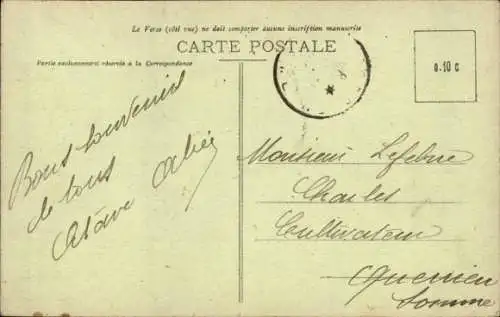 Le Verso (côté vue) ne doit comporter aucune inscription manuscrite
CARTE POSTALE
Partie exclusivement réservée à la Correspondance
0.10 c
Bons souvenirs
de tous
Monsieur Lefebvre
Charles
Cultivateur
Querrieu
Somme